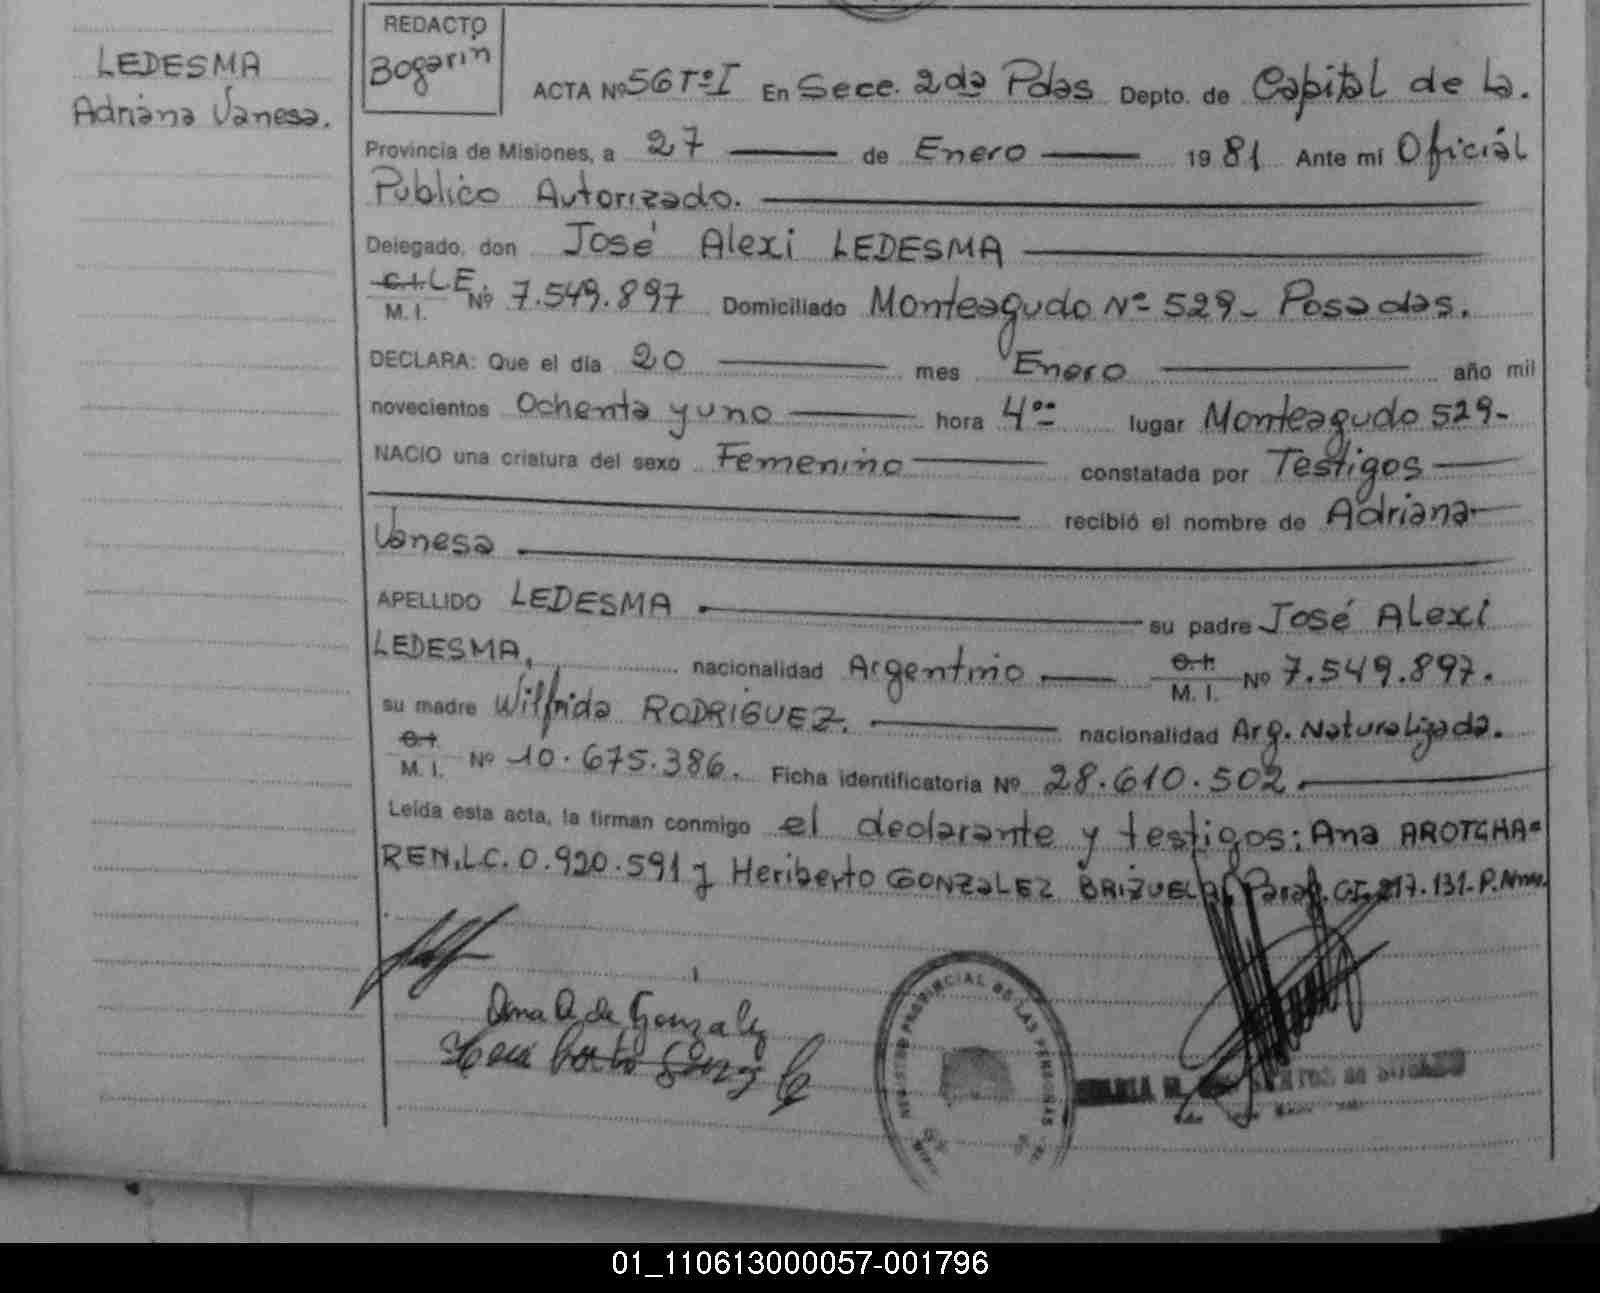 LEDESMA
Adriana Vanesa.
REDACTO
Bogarin
ACTA Nº 56 Tº I En Secc. 2da Pdas Depto. de Capital de la.
Provincia de Misiones, a 27 de Enero 1981 Ante mi Oficial
Publico Autorizado.
Delegado, don José Alexi LEDESMA
C.I. L.E. Nº 7.549.897 Domiciliado Monteagudo Nº 529- Posadas.
M. I.
DECLARA: Que el día 20 mes Enero año mil
novecientos Ochenta y uno hora 4ºº lugar Monteagudo 529-
NACIO una criatura del sexo Femenino constatada por Testigos
recibió el nombre de Adriana
Vanesa
APELLIDO LEDESMA su padre José Alexi
LEDESMA, nacionalidad Argentino C.I. M. I. Nº 7.549.897.
su madre Wilfrida RODRIGUEZ. nacionalidad Arg. Naturalizada.
C.I. M. I. Nº 10.675.386. Ficha identificatoria Nº 28.610.502
Leída esta acta, la firman conmigo el declarante y testigos: Ana AROTCHA=
REN, L.C. 0.920.591 y Heriberto GONZALEZ BRIZUELA, Parag. C.I. 217.131-P.Mnes.
Ana A de Gonzalez
REGISTRO PROVINCIAL DE LAS PERSONAS
01_110613000057-001796